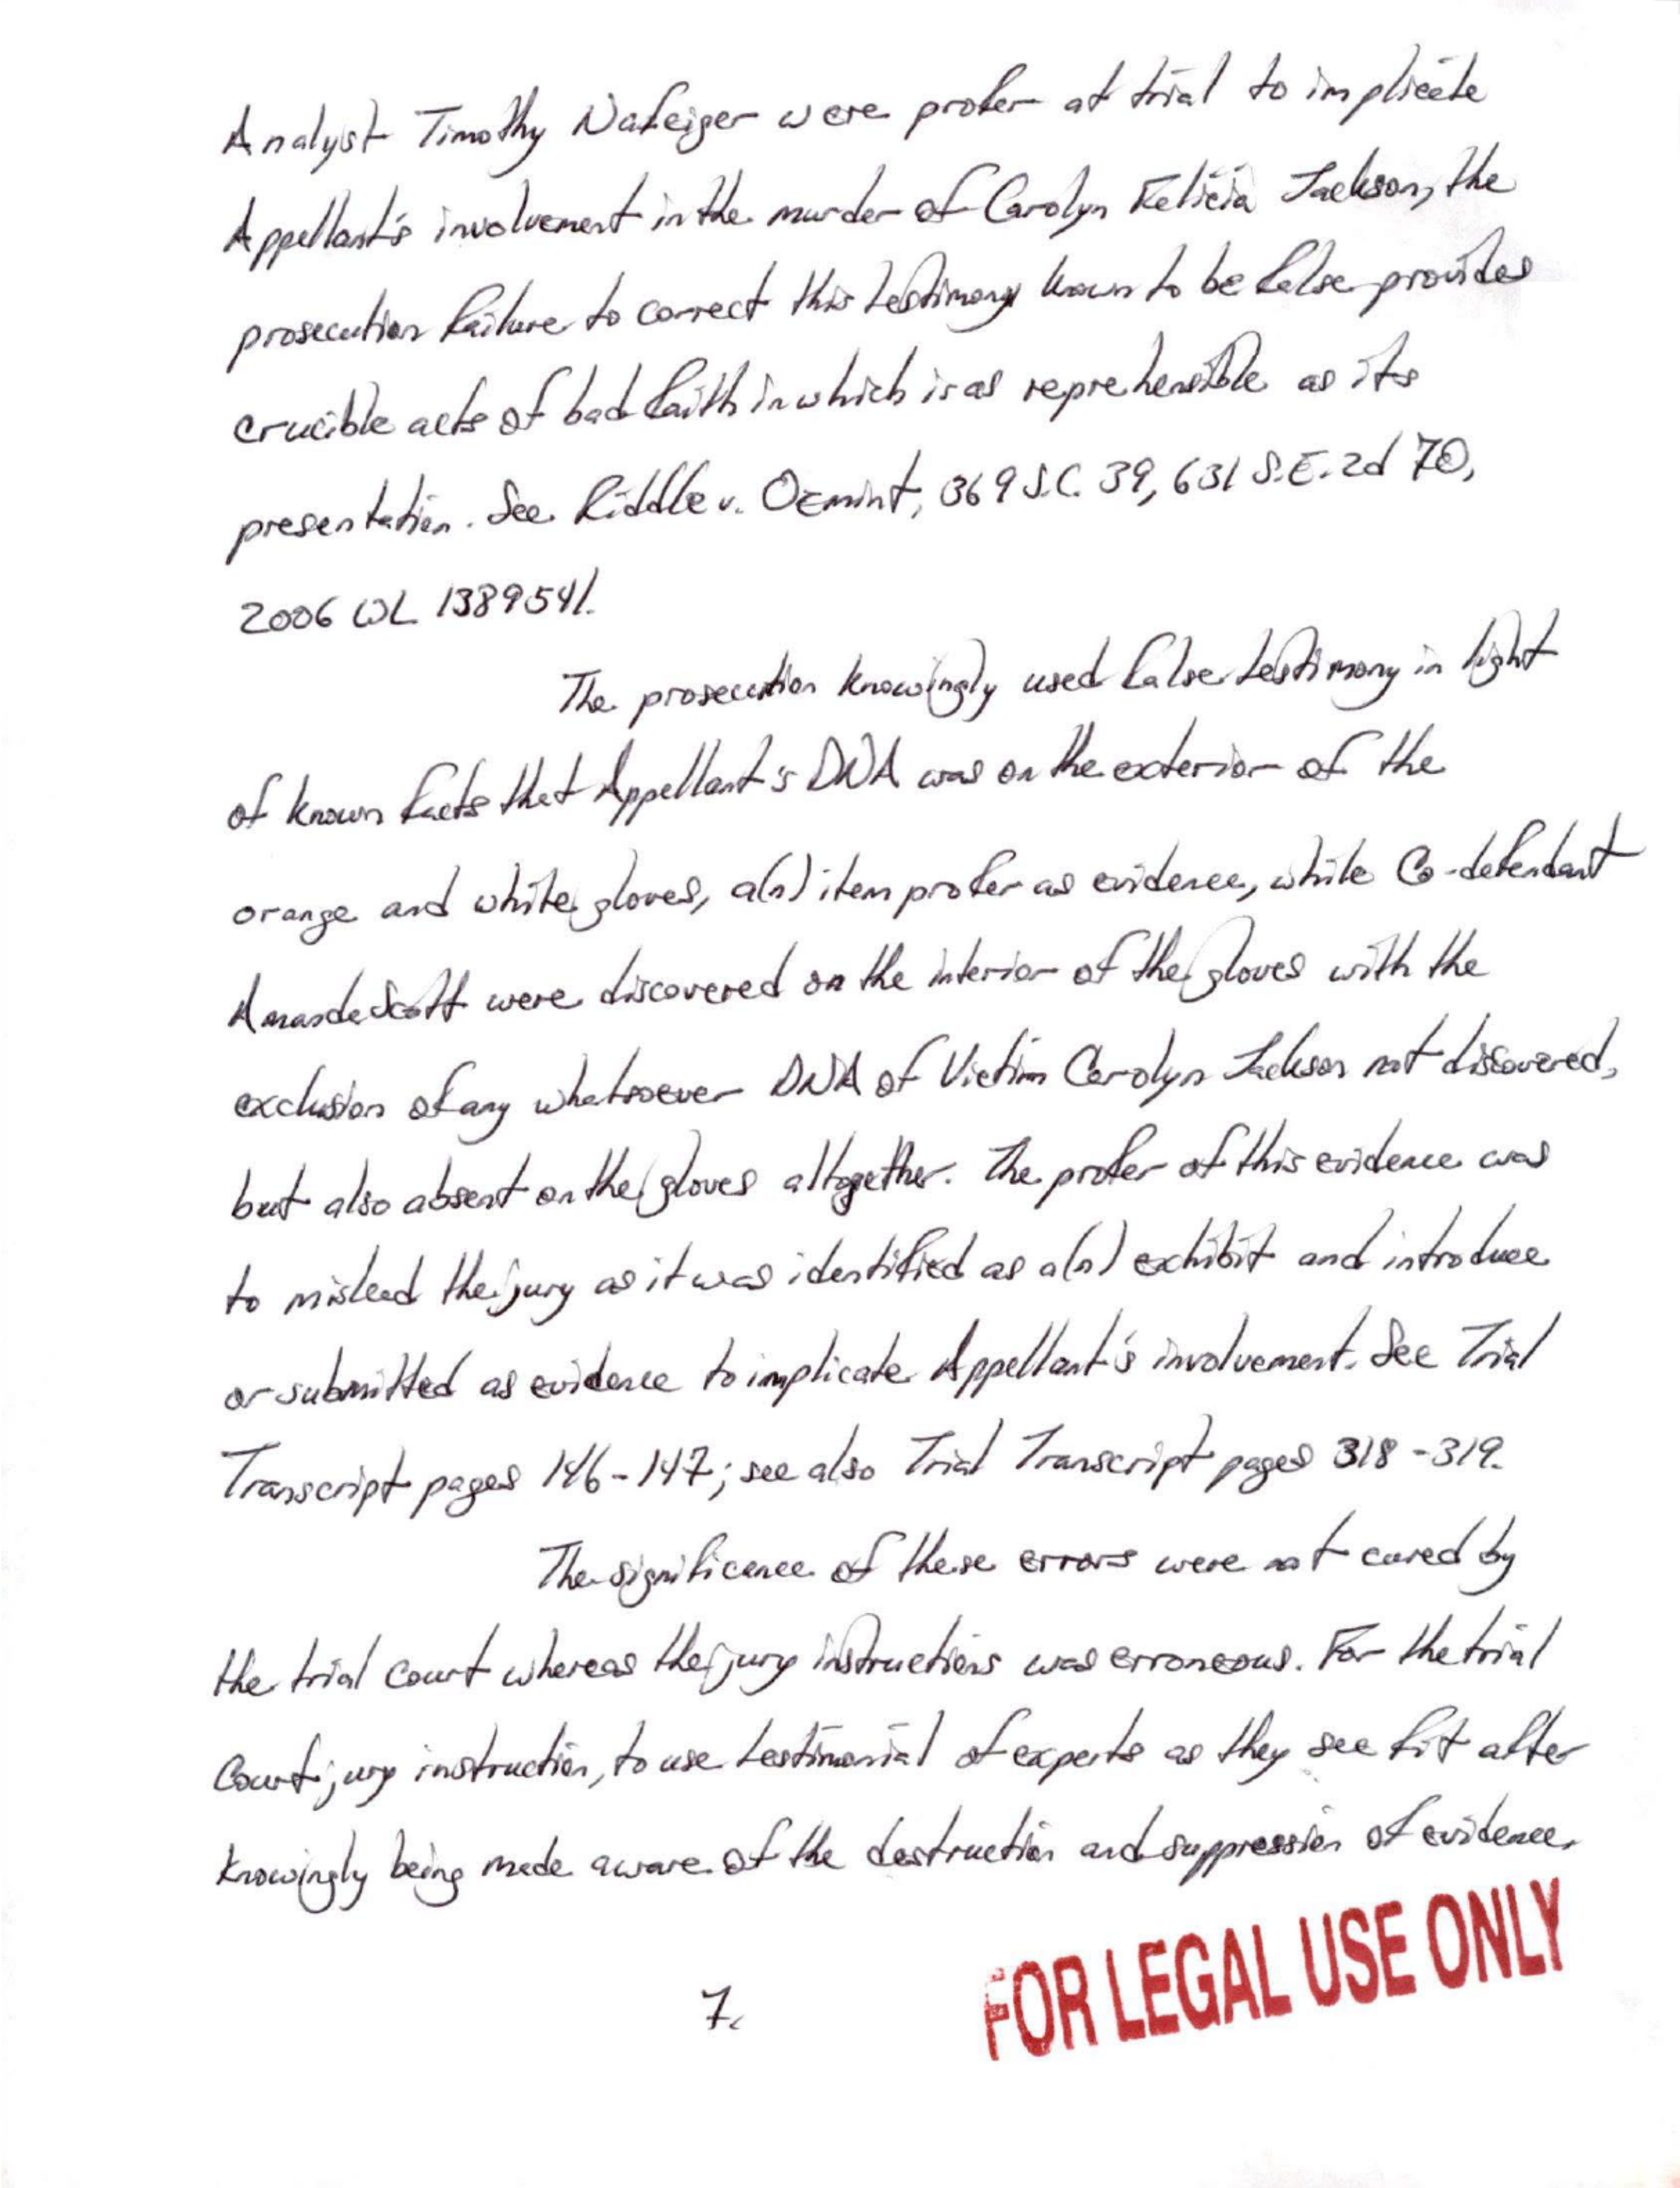 Analyst Timothy Nafeiger were profer at trial to implicate
Appellant's involvement in the murder of Carolyn Felicia Jackson, the
prosecution failure to correct this testimony known to be false provides
crucible acts of bad faith in which is as reprehensible as its
presentation. See Riddle v. Ozmint, 369 S.C. 39, 631 S.E. 2d 70,
2006 WL 1389541.
The prosecution know(ingly) used false testimony in light
of known facts that Appellant's DNA was on the exterior of the
orange and white gloves, a(n) item profer as evidence, while Co-defendant
Amanda Scott were discovered on the interior of the gloves with the
exclusion of any whatsoever DNA of Victim Carolyn Jackson not discovered,
but also absent on the gloves altogether. The profer of this evidence was
to mislead the jury as it was identified as a(n) exhibit and introduce
or submitted as evidence to implicate Appellant's involvement. See Trial
Transcript pages 146-147; see also Trial Transcript pages 318-319.
The significance of these errors were not cured by
the trial court whereas the jury instructions was erroneous. For the trial
Court jury instruction, to use testimonial of experts as they see fit after
knowingly being made aware of the destruction and suppression of evidence,
7.
FOR LEGAL USE ONLY